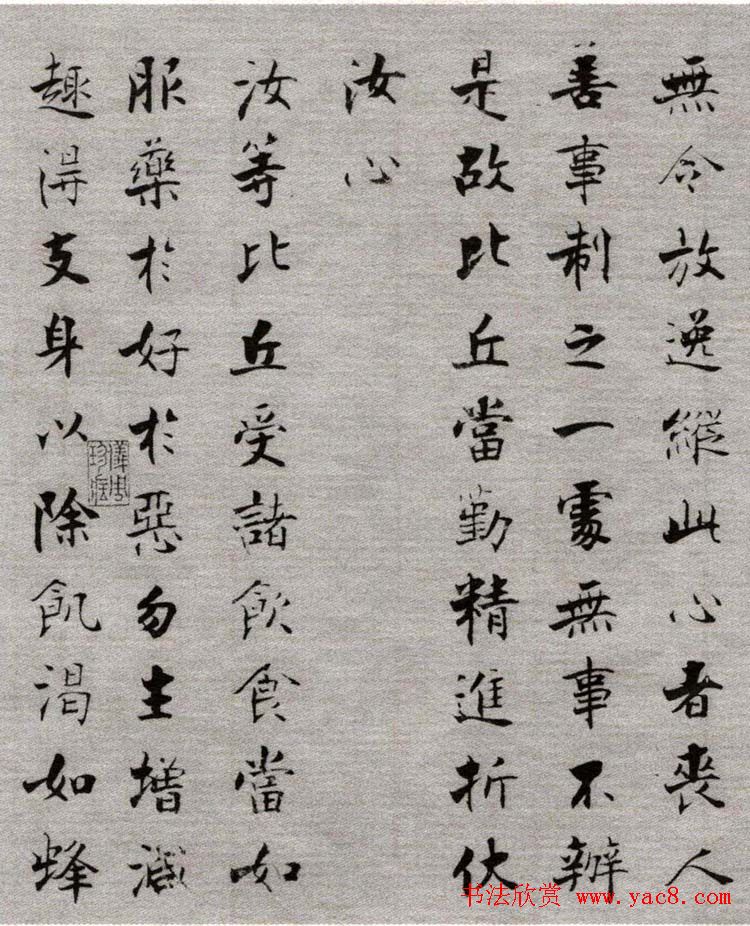 無令放逸縱此心者喪人
善事制之一處無事不辦
是故比丘當勤精進折伏
汝心
汝等比丘受諸飲食當如
服藥於好於惡勿生增減
趣得支身以除飢渴如蜂
书法欣赏 www.yac8.com